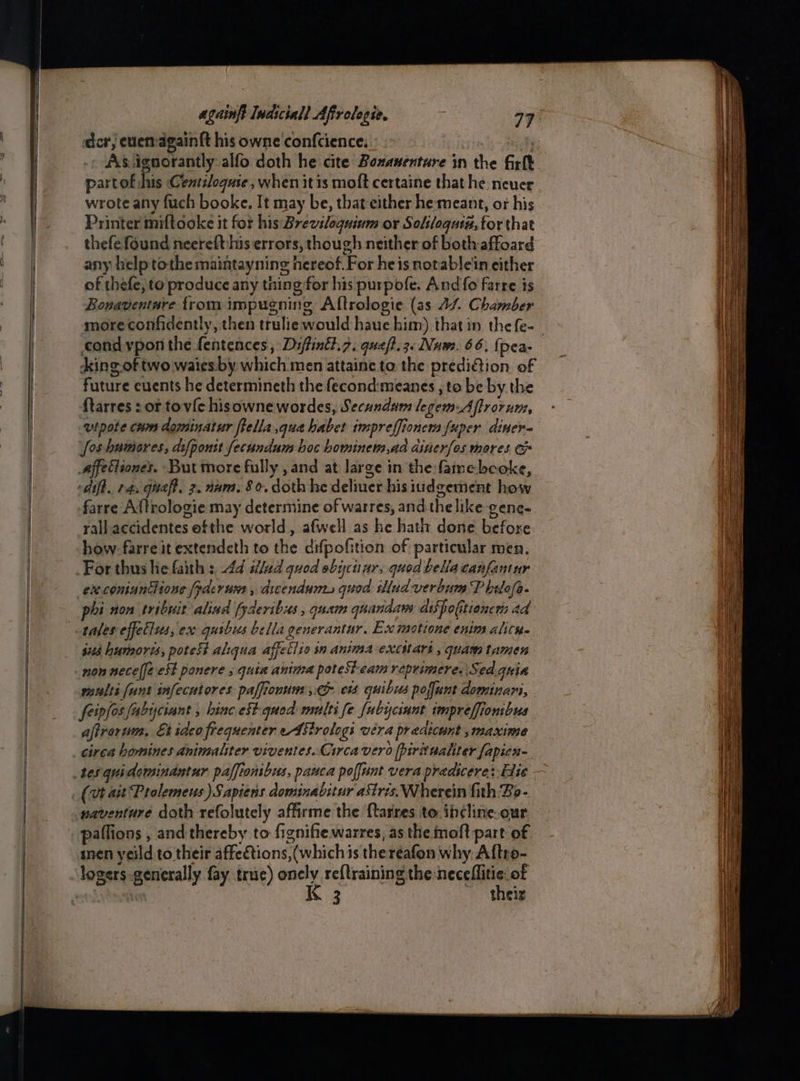 againſt Iudiciall Aſtrologie. 77
der, euen againſt his owne conſcience.
As ignorantly alſo doth he cite Bonauenture in the firſt
part of his Centiloquie, when it is moſt certaine that he neuer
wrote any ſuch booke. It may be, that either he meant, or his
Printer miſtooke it for his Breviloquium or Soliloquiũ, for that
theſe found neereſt his errors, though neither of both affoard
any help to the maintayning hereof. For he is not able in either
of theſe, to produce any thing for his purpoſe. And ſo farre is
Bonaventure from impugning Aſtrologie (as M. Chamber
more confidently, then trulie would haue him) that in the ſe-
cond vpon the ſentences, Diſtinct. 7. queſt. 3. Num. 66. ſpea-
king of two waies by which men attaine to the prediction of
future euents he determineth the ſecond meanes, to be by the
ſtarres: or to vſe his owne wordes, Secundum legem Aſtrorum,
vtpote cum dominatur ſtella, qua habet impreſſionem ſuper diuer-
ſos humores, diſponit ſecundum hoc hominem, ad diuerſos mores &
affectiones. But more fully, and at large in the ſame booke,
diſt. 14. queſt. 3. num. 80. doth he deliuer his iudgement how
farre Aſtrologie may determine of warres, and the like gene-
rall accidentes of the world, aſwell as he hath done before
how farre it extendeth to the diſpoſition of particular men.
For thus he ſaith: Ad illud quod obijcitur, quod bella cauſantur
ex coniunctione ſyderum, dicendum quod illud verbum Philoſo-
phi non tribuit aliud ſyderibus, quam quandam diſpoſitionem ad
tales effectus, ex quibus bella generantur. Ex motione enim alicu-
ius humoris, poteſt aliqua affectio in anima excitari, quam tamen
non neceſſe eſt ponere, quia anima poteſt eam reprimere. Sed quia
multi ſunt inſecutores paſſionum, & eis quibus poſſunt dominari,
ſeipſos ſubijciunt, hinc eſt quod multi ſe ſubijciunt impreſſionibus
aſtrorum. Et ideo frequenter Aſtrologi vera predicunt, maxime
circa homines animaliter viventes. Circa verò ſpiritualiter ſapien-
tes qui dominantur paſſionibus, pauca poſſunt vera predicere: Hic
(vt ait Ptolemeus) Sapiens dominabitur aſtris. Wherein ſith Bo-
naventure doth reſolutely affirme the ſtarres to incline our
paſſions, and thereby to ſignifie warres, as the moſt part of
men yeild to their affections, (which is the reaſon why Aſtro-
logers generally ſay true) onely reſtraining the neceſſitie of
K 3 their